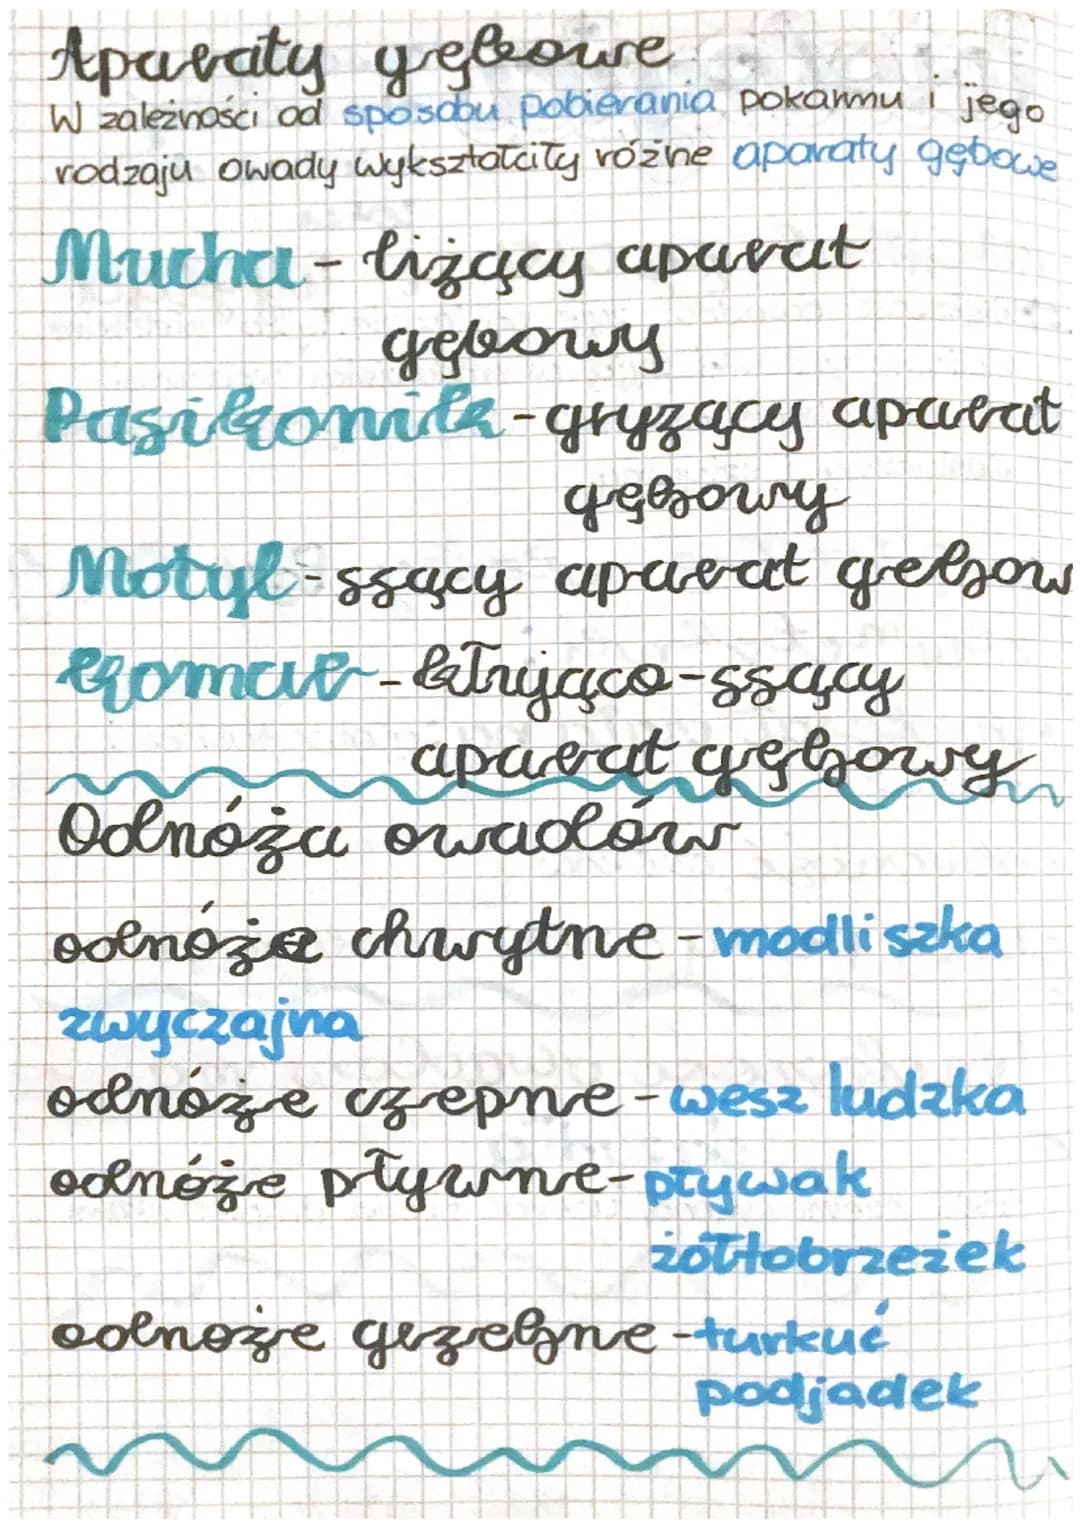 Aparaty gębowe
W zależności od sposobu pobierania pokarmu i jego
rodzaju owady wykształciły różne aparaty gębowe
Mucha - liżący aparat
gębowy
Pasikonik - gryzący aparat
gębowy
Motyl - ssący aparat gebow
Komar - kłująco-ssący
aparat gębowy
Odnóża owadów
odnóża chwytne - modliszka
zwyczajna
odnóże czepne - wesz ludzka
odnóże pływne - pływak
żółtobrzeżek
odnoże grzebne - turkuć
podjadek